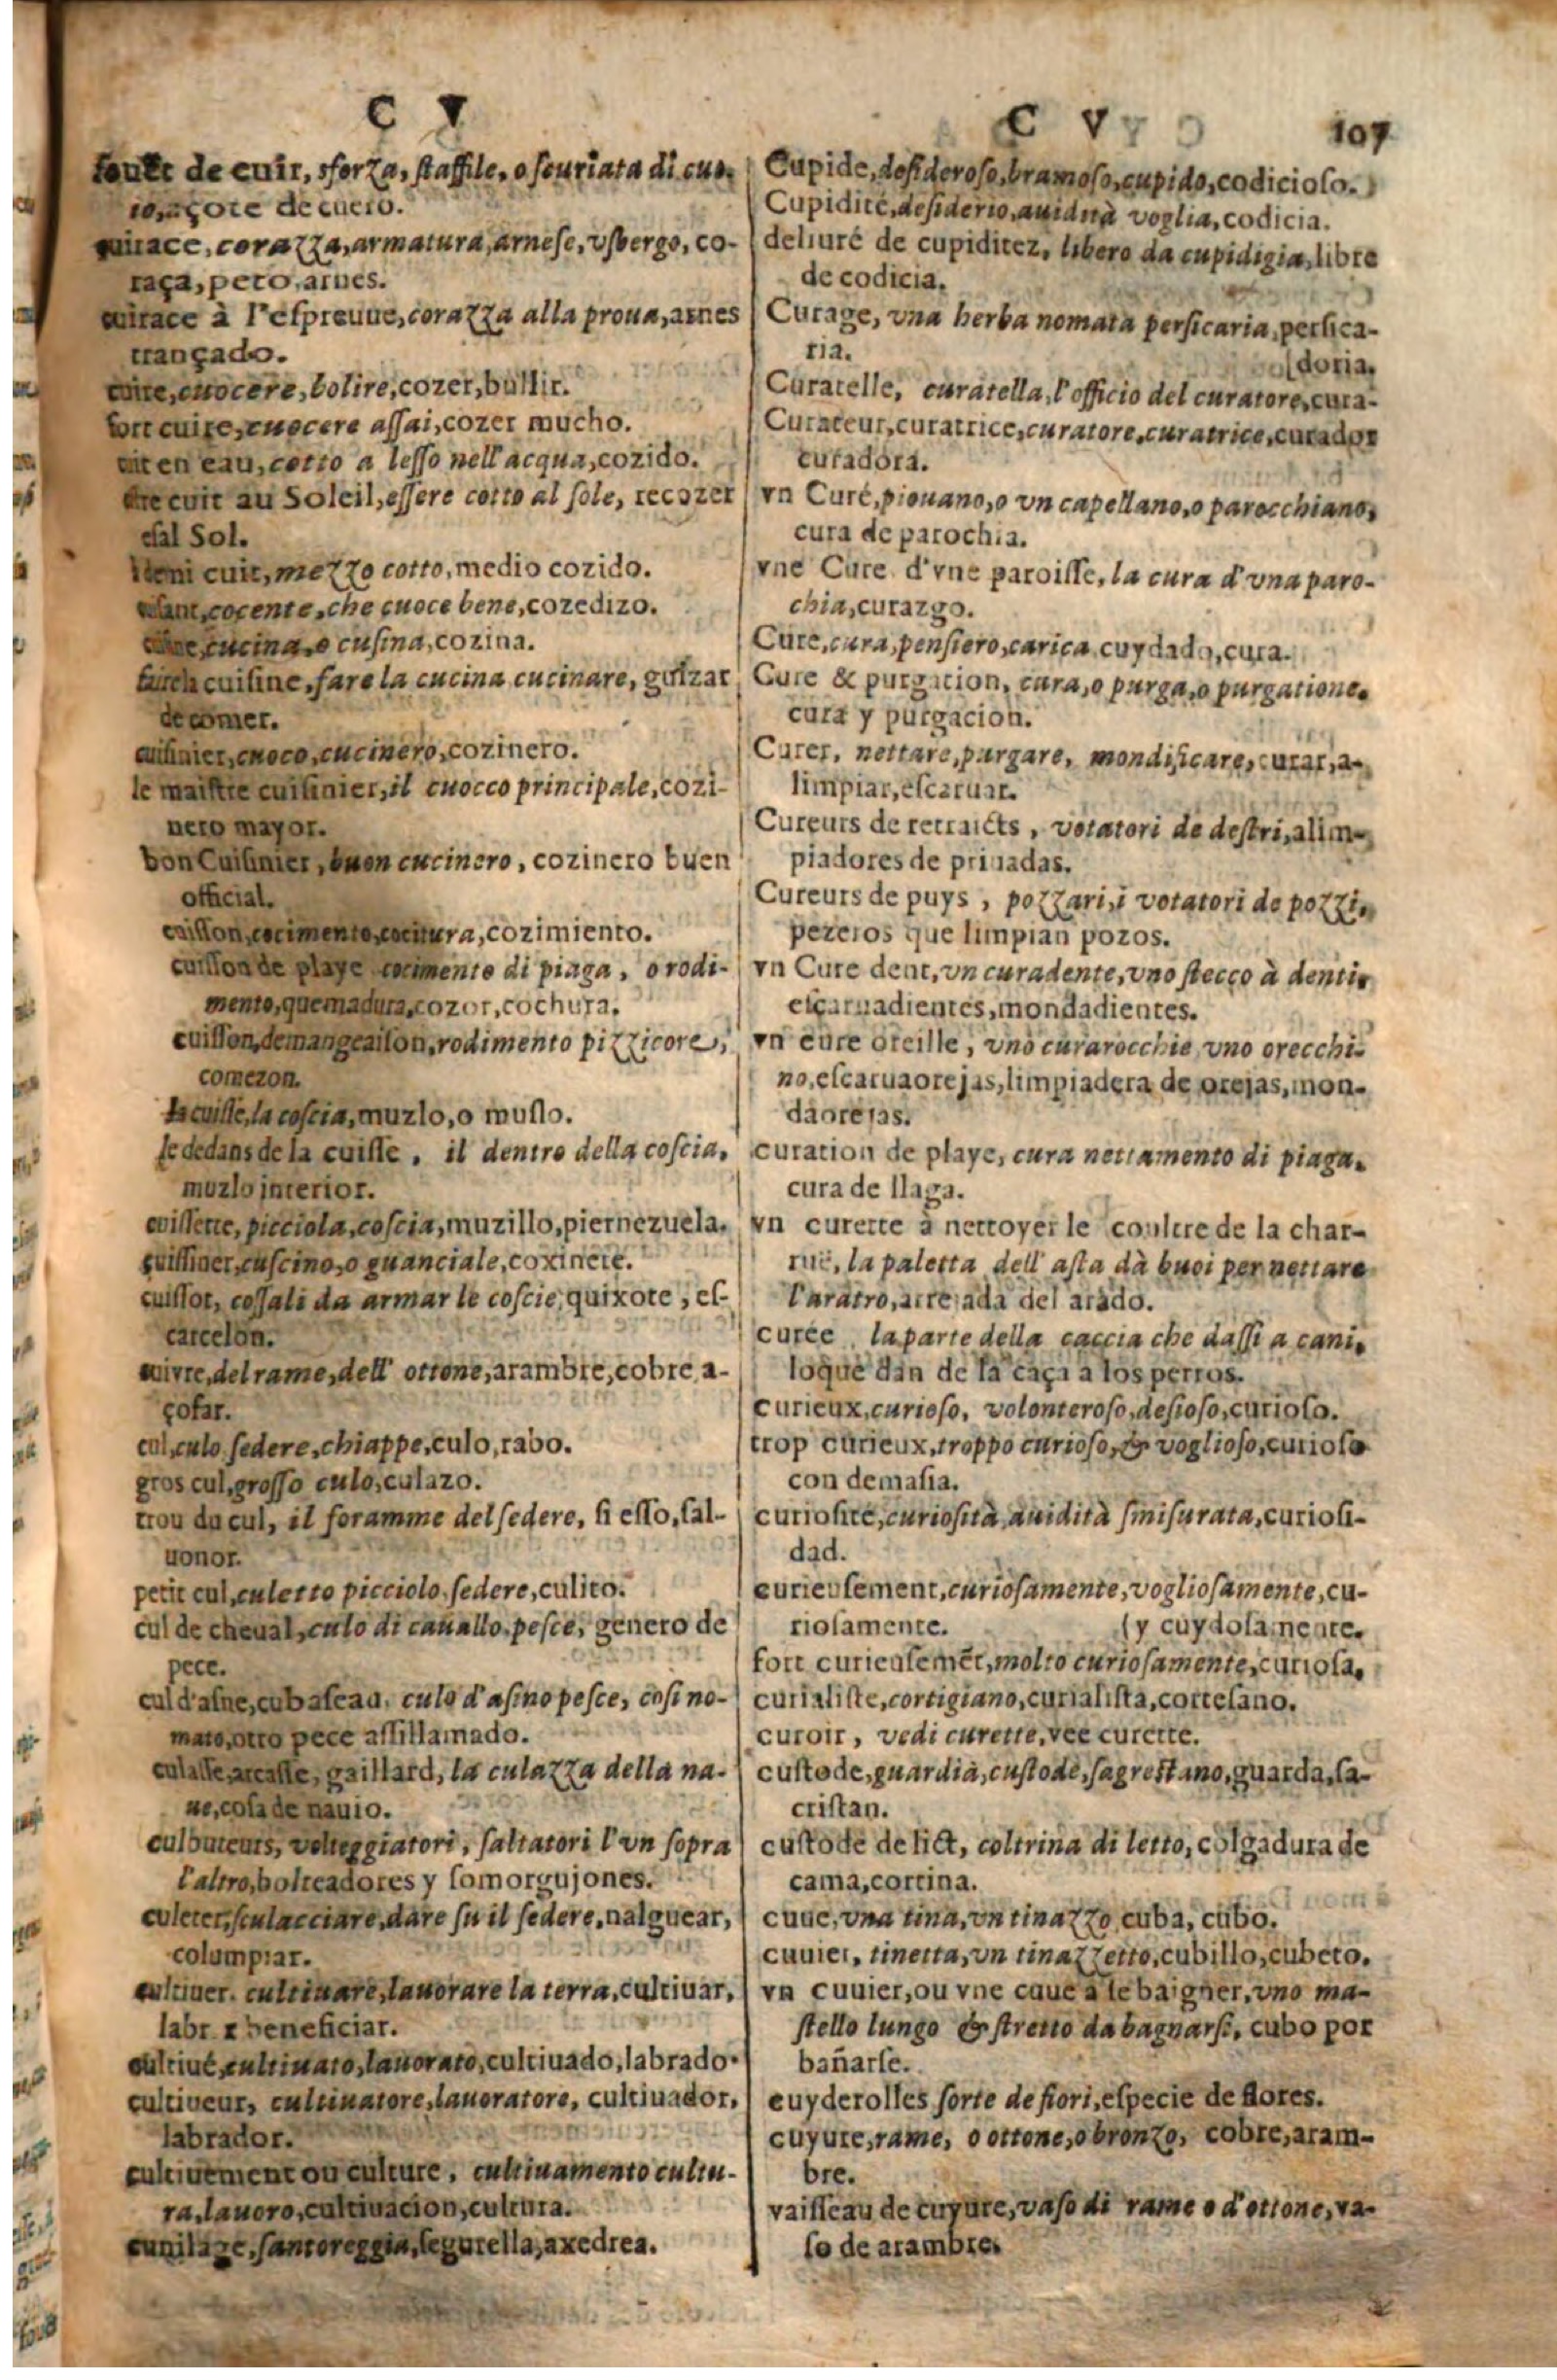 C V
fouët de cuir, sforza, staffile, o scuriata di cuo-
io, açote de cuero.
cuirace, corazza, armatura, arnese, vsbergo, co-
raça, peto, arnes.
cuirace à l'espreuue, corazza alla proua, arnes
trançado.
cuire, cuocere, bolire, cozer, bullir.
fort cuire, cuocere assai, cozer mucho.
cuit en eau, cotto a lesso nell'acqua, cozido.
estre cuit au Soleil, essere cotto al sole, recozer
esal Sol.
demi cuit, mezzo cotto, medio cozido.
cocente, che cuoce bene, cozedizo.
cucina, o cusina, cozina.
faire la cuisine, fare la cucina cucinare, guizar
de comer.
cuisinier, cuoco, cucinero, cozinero.
le maistre cuisinier, il cuocco principale, cozi-
nero mayor.
bon Cuisinier, buon cucinero, cozinero buen
official.
cuisson, cocimento, cocitura, cozimiento.
cuisson de playe cocimento di piaga, o rodi-
mento, quemadura, cozor, cochura.
cuisson, demangeaison, rodimento pizzicore,
comezon.
la cuisse, la coscia, muzlo, o muslo.
le dedans de la cuisse, il dentro della coscia,
muzlo interior.
cuissette, picciola, coscia, muzillo, piernezuela.
cuissiner, cuscino, o guanciale, coxinete.
cuissot, cossali da armar le coscie, quixote, es-
carcelon.
cuivre, del rame, dell' ottone, arambre, cobre, a-
çofar.
cul, culo sedere, chiappe, culo, rabo.
gros cul, grosso culo, culazo.
trou du cul, il foramme del sedere, si esso, sal-
uonor.
petit cul, culetto picciolo sedere, culito.
cul de cheual, culo di cauallo pesce, genero de
pece.
cul d'asne, cubaseau, culo d'asino pesce, cosi no-
mato, otro pece assillamado.
culasse, arcasse, gaillard, la culazza della na-
ue, cosa de nauio.
culbuteurs, volteggiatori, saltatori l'vn sopra
l'altro, bolteadores y somorgujones.
culeter, sculacciare, dare su il sedere, nalguear,
columpiar.
cultiuer. cultiuare, lauorare la terra, cultiuar,
labrar beneficiar.
cultiué, cultiuato, lauorato, cultiuado, labrado.
cultiueur, cultiuatore, lauoratore, cultiuador,
labrador.
cultiuement ou culture, cultiuamento cultu-
ra, lauoro, cultiuacion, cultura.
cunilage, santoreggia, segurella, axedrea.
C V 107
Cupide, desideroso, bramoso, cupido, codicioso.
Cupidité, desiderio, auidità voglia, codicia.
deliuré de cupiditez, libero da cupidigia, libre
de codicia.
Curage, vna herba nomata persicaria, persica-
ria.
(doria.
Curatelle, curatella, l'officio del curatore, cura-
Curateur, curatrice, curatore, curatrice, curador
curadora.
vn Curé, piouano, o vn capellano, o parocchiano,
cura de parochia.
vne Cure d'vne paroisse, la cura d'vna paro-
chia, curazgo.
Cure, cura, pensiero, carica, cuydado, cura.
Cure & purgation, cura, o purga, o purgatione,
cura y purgacion.
Curer, nettare, purgare, mondificare, curar, a-
limpiar, escaruar.
Cureurs de retraicts, votatori de destri, alim-
piadores de priuadas.
Cureurs de puys, pozzari, i votatori de pozzi,
pezeros que limpian pozos.
vn Cure dent, vn curadente, vno stecco à denti,
escaruadientes, mondadientes.
vn cure oreille, vno curarocchie, vno orecchi-
no, escaruaorejas, limpiadera de orejas, mon-
daorejas.
curation de playe, cura nettamento di piaga,
cura de llaga.
vn curette à nettoyer le coultre de la char-
ruë, la paletta dell' asta dà buoi per nettare
l'aratro, arrejada del arado.
curée, la parte della caccia che dassi a cani,
loque dan de la caça a los perros.
curieux, curioso, volonteroso, desioso, curioso.
trop curieux, troppo curioso, & voglioso, curioso
con demasia.
curiosité, curiosità, auidità smisurata, curiosi-
dad.
curieusement, curiosamente, vogliosamente, cu-
riosamente. (y cuydosamente.
fort curieusemēt, molto curiosamente, curiosa,
curialiste, cortigiano, curialista, cortesano.
curoir, vedi curette, vee curette.
custode, guardia, custode, sagrestano, guarda, sa-
cristan.
custode de lict, coltrina di letto, colgadura de
cama, cortina.
cuue, vna tina, vn tinazzo, cuba, cubo.
cuuier, tinetta, vn tinazzetto, cubillo, cubeto.
vn cuuier, ou vne cuue à se baigner, vno ma-
stello lungo & stretto da bagnarsi, cubo por
bañarse.
cuyderolles sorte de fiori, especie de flores.
cuyure, rame, o ottone, o bronzo, cobre, aram-
bre.
vaisseau de cuyure, vaso di rame o d'ottone, va-
so de arambre.